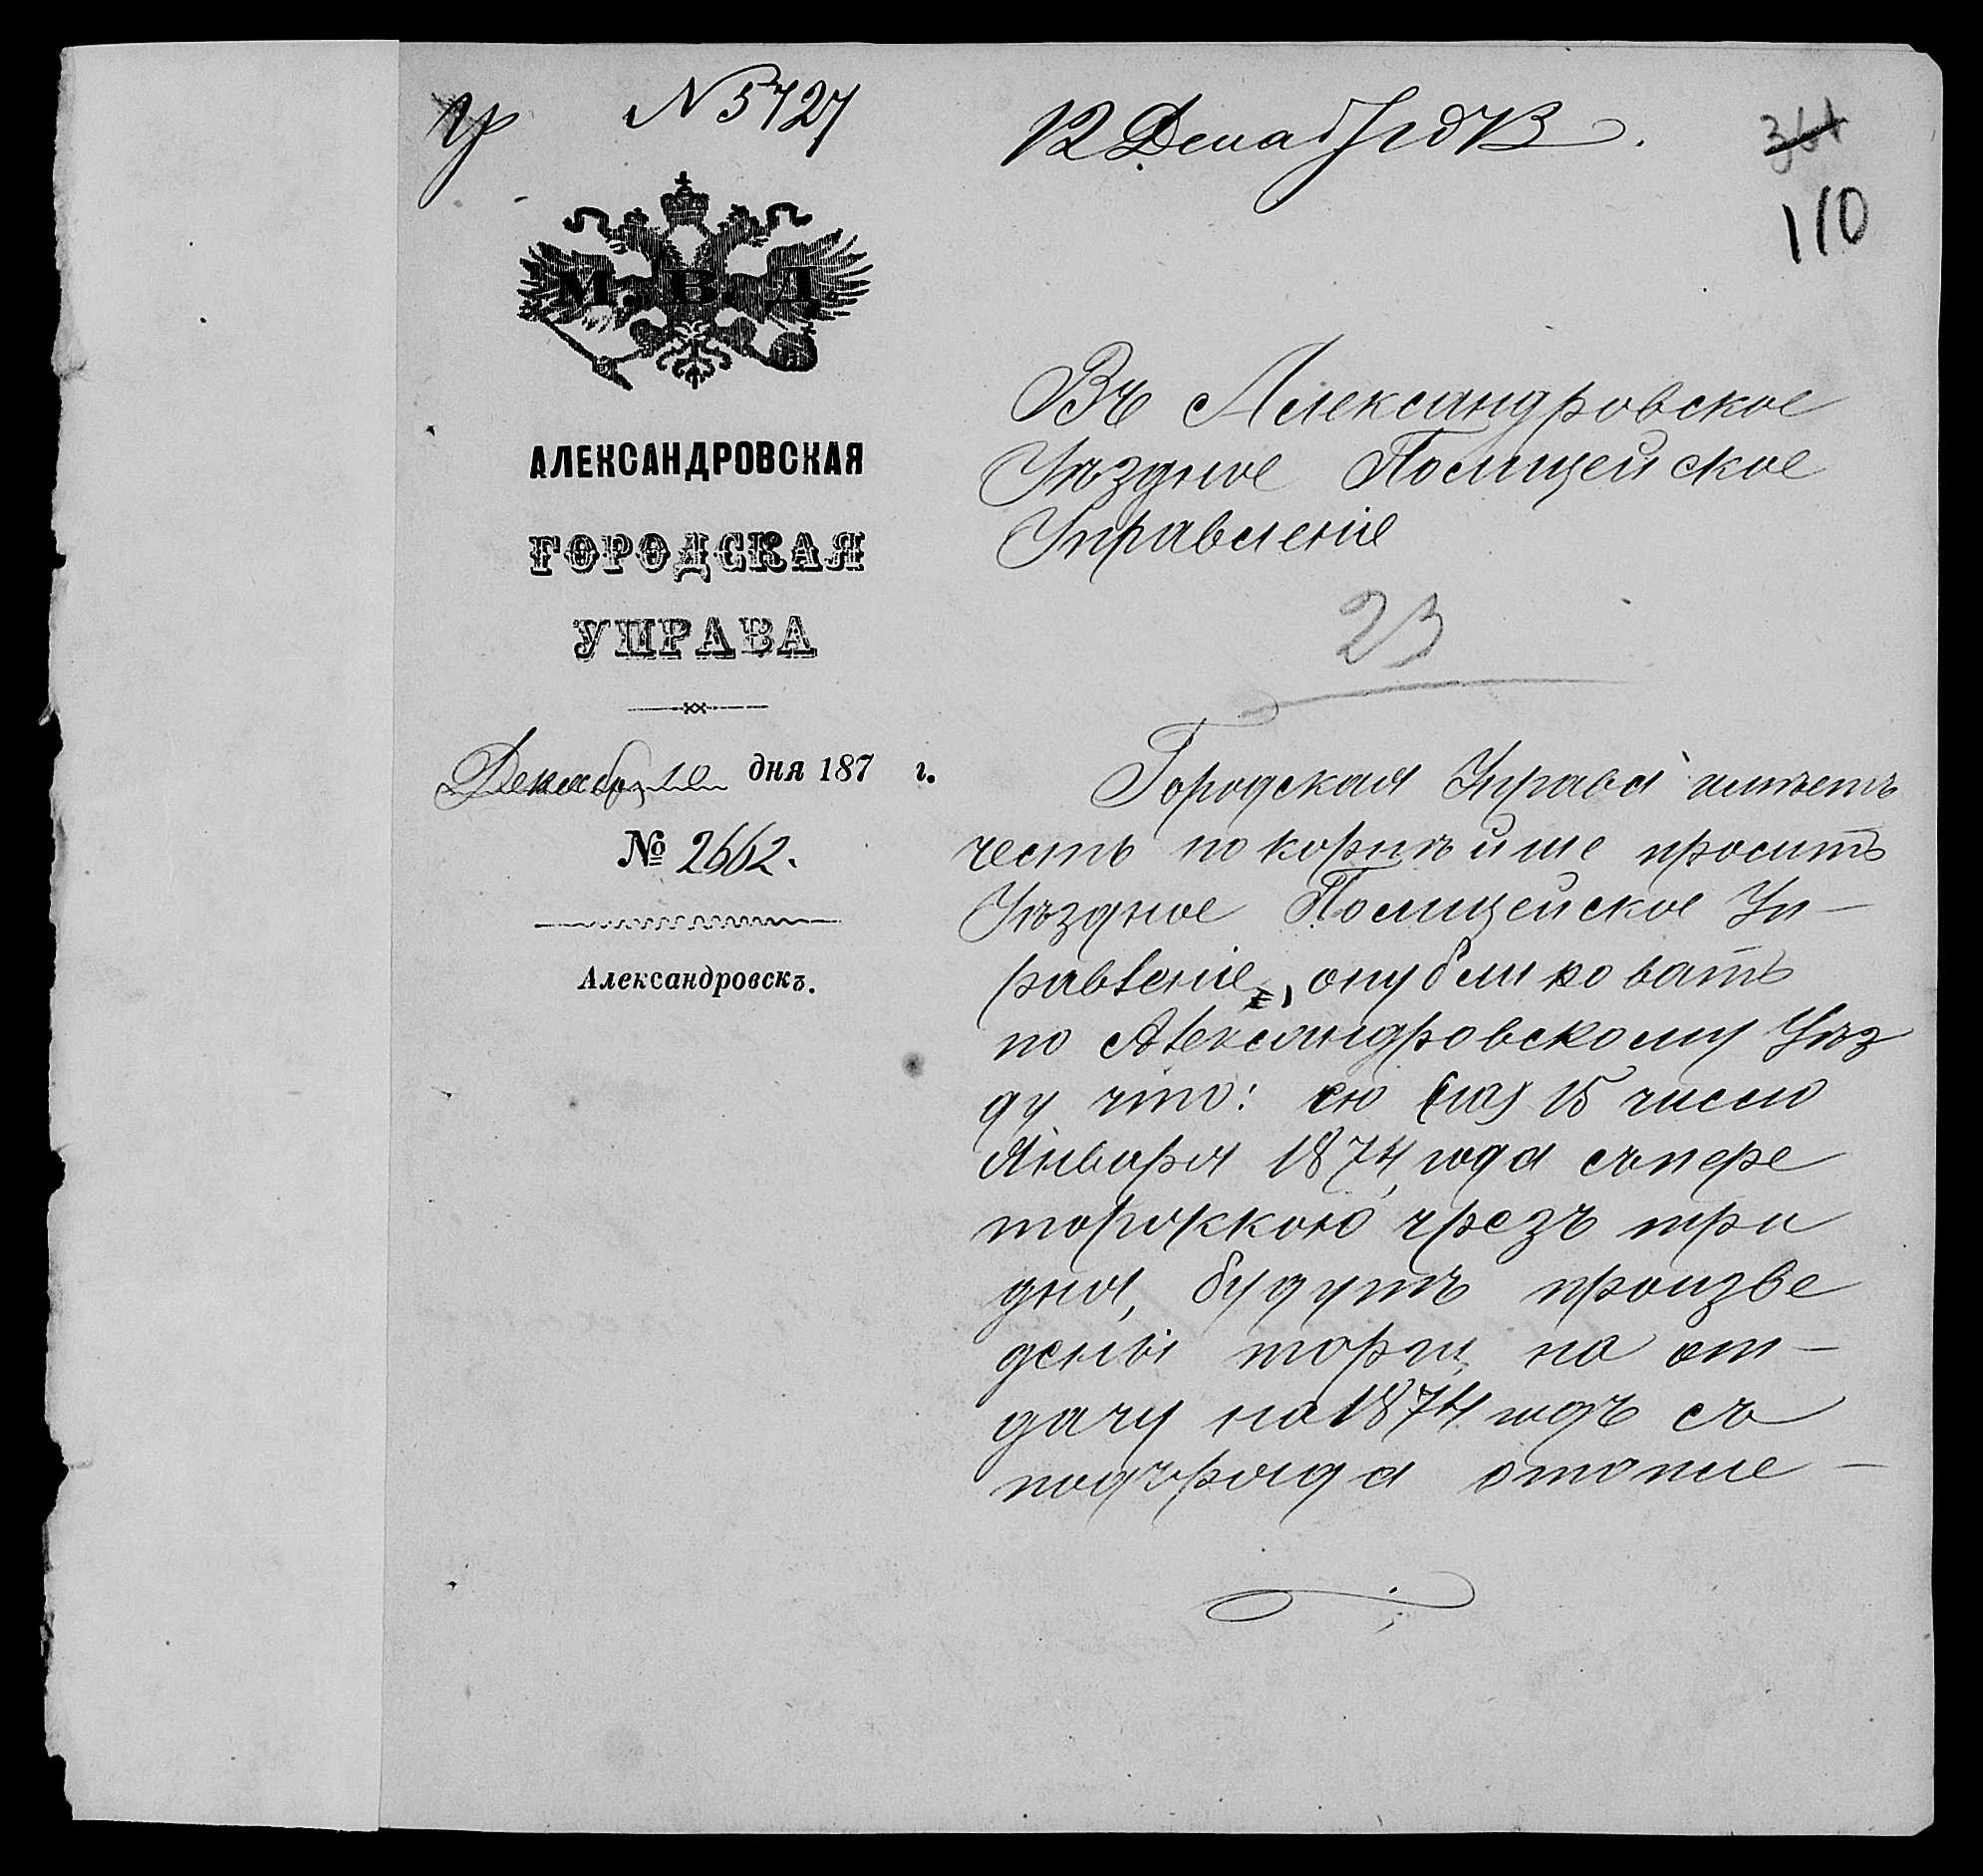 № 5727
12 Декаб 1873.
361
110
М. В. Д.
АЛЕКСАНДРОВСКАЯ
ГОРОДСКАЯ
УПРАВА
Декабря 10 дня 187 г.
№ 2662.
Александровскъ.
Въ Александровское
Уѣздное Полицейское
Управленіе
23
Городская Управа имѣетъ
честь покорнѣйше просить
Уѣздное Полицейское Уп-
равленіе, опубликовать
по Александровскому Уѣз
ду что: 15 число
Января 1874 года съ пере
торжкою чрезъ три
дня, будутъ произве
дены торги на от-
дачу на 1874 годъ съ
подъряда отопле-